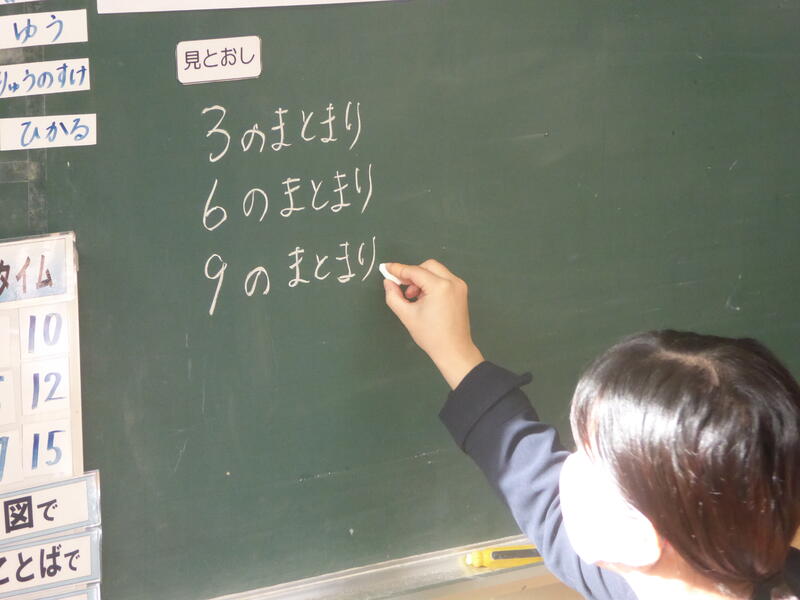 ゆう
りゅうのすけ
ひかる
見とおし
3のまとまり
6のまとまり
9のまとまり
タイム
10
12
15
図で
ことばで